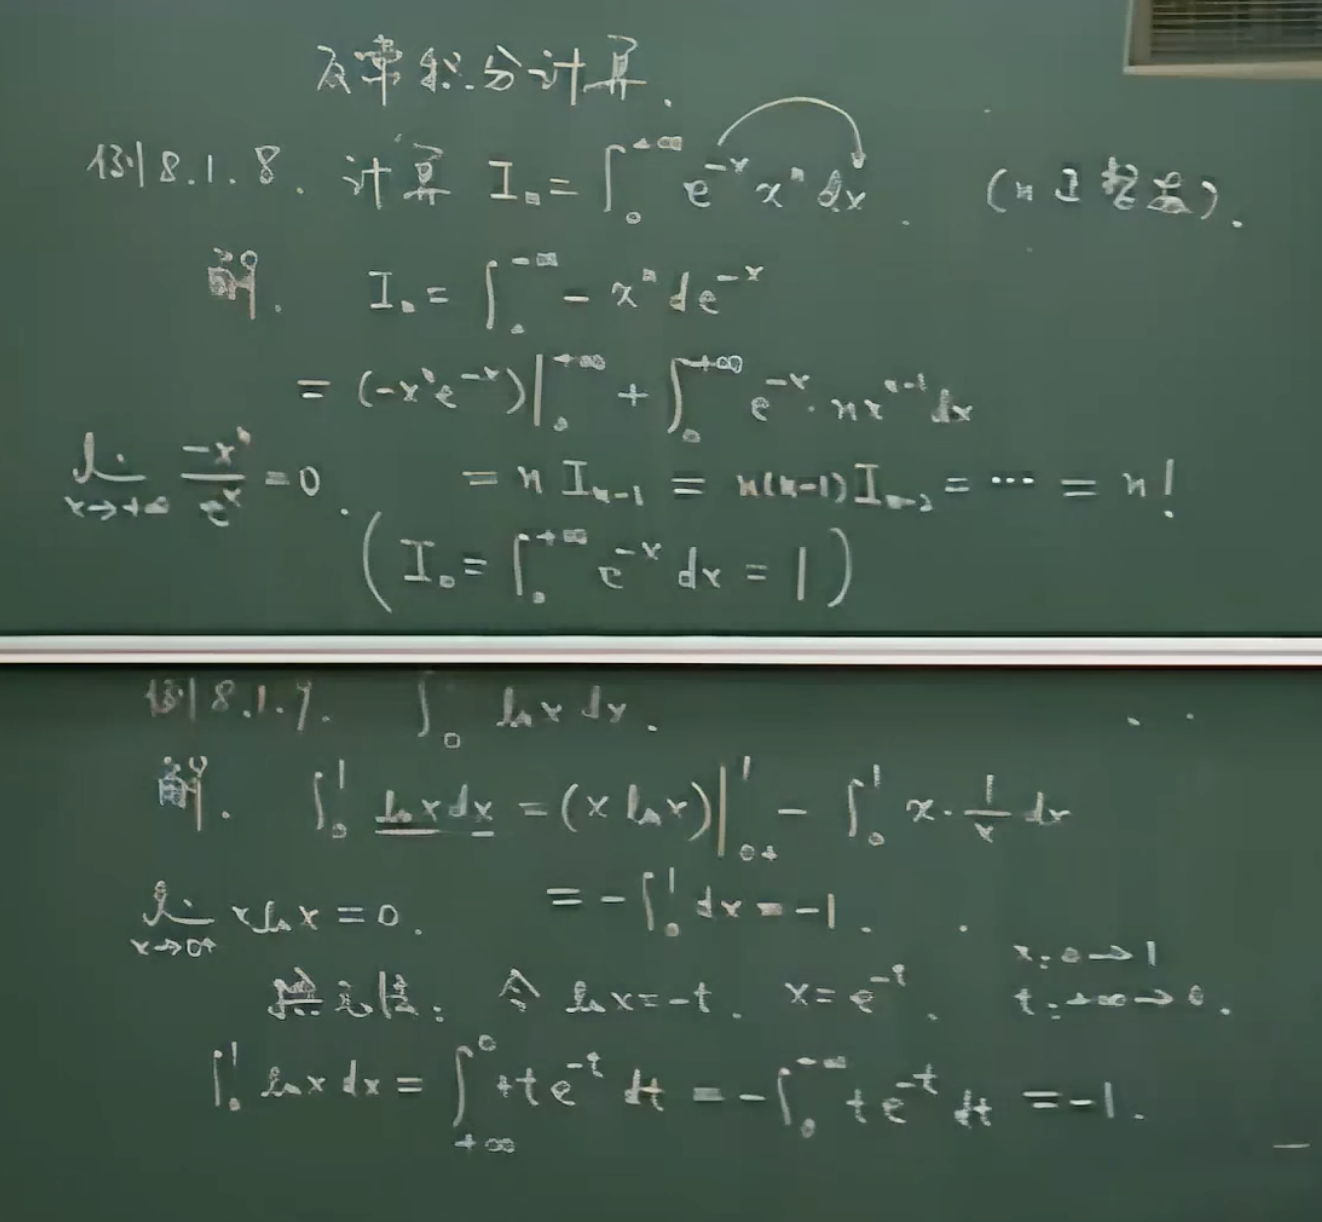 反常积分计算.
例8.1.8. 计算 I_n = ∫_0^{+∞} e^{-x} x^n dx. (n正整数).
解. I_n = ∫_0^{+∞} - x^n de^{-x}
= (-x^n e^{-x})|_0^{+∞} + ∫_0^{+∞} e^{-x}·nx^{n-1} dx
lim_{x→+∞} \frac{-x^n}{e^x} = 0. = n I_{n-1} = n(n-1) I_{n-2} = ⋯ = n!
(I_0 = ∫_0^{+∞} e^{-x} dx = 1)
例8.1.9. ∫_0 ln x dx.
解. ∫_0^1 ln x dx = (x ln x)|_{0+}^1 - ∫_0^1 x·\frac{1}{x} dx
lim_{x→0+} x ln x = 0. = -∫_0^1 dx = -1.
换元法: 令 ln x = -t. x = e^{-t}. x: 0→1
t: +∞→0.
∫_0^1 ln x dx = ∫_{+∞}^0 +te^{-t} dt = -∫_0^{+∞} te^{-t} dt = -1.